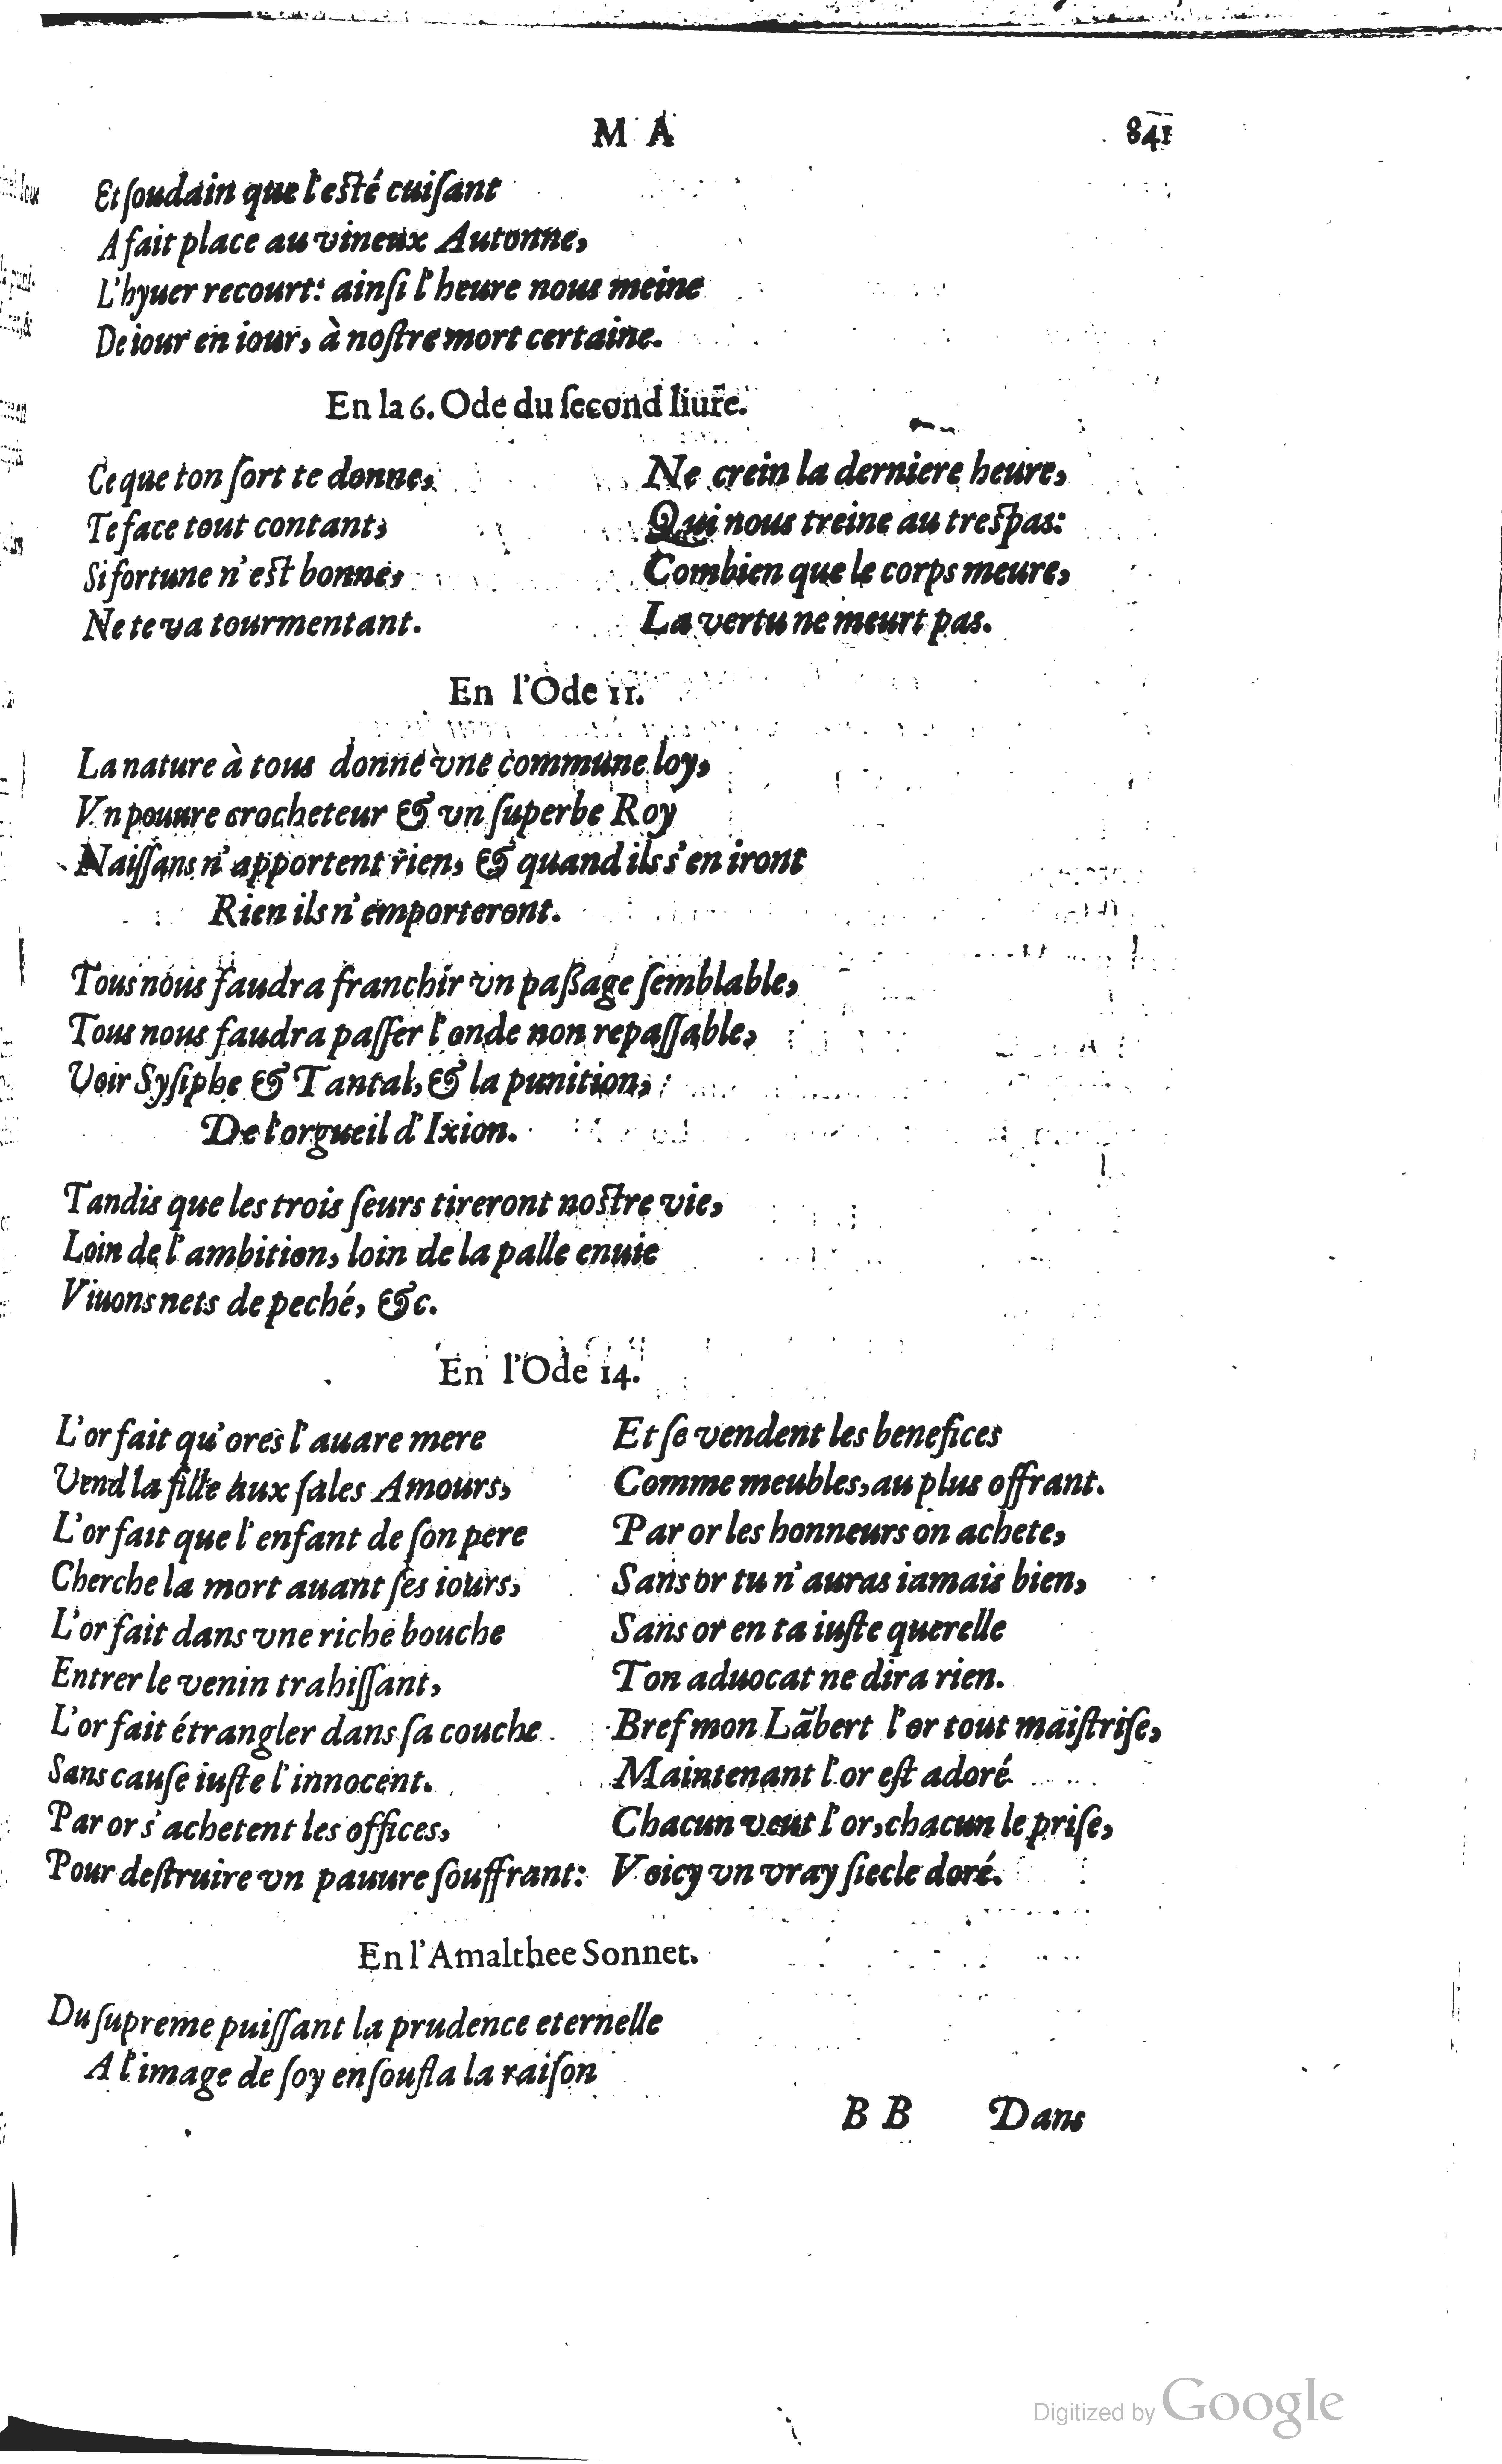 M A 841
Et ſoudain que l'eſté cuiſant
A fait place au vineux Autonne,
L'hyuer recourt: ainſi l'heure nous meine
De iour en iour, à noſtre mort certaine.
En la 6. Ode du ſecond liure.
Ce que ton ſort te donne,
Te face tout contant,
Si fortune n'eſt bonne,
Ne te va tourmentant.
Ne crein la derniere heure,
Qui nous treine au treſpas:
Combien que le corps meure,
La vertu ne meurt pas.
En l'Ode 11.
La nature à tous donne vne commune loy,
Vn pouure crocheteur & vn ſuperbe Roy
Naiſſans n'apportent rien, & quand ils s'en iront
Rien ils n'emporteront.
Tous nous faudra franchir vn paßage ſemblable,
Tous nous faudra paſſer l'onde non repaſſable,
Voir Syſiphe & Tantal, & la punition,
De l'orgueil d'Ixion.
Tandis que les trois ſeurs tireront noſtre vie,
Loin de l'ambition, loin de la palle enuie
Viuons nets de peché, &c.
En l'Ode 14.
L'or fait qu'ores l'auare mere
Vend la fille aux ſales Amours,
L'or fait que l'enfant de ſon pere
Cherche la mort auant ſes iours,
L'or fait dans vne riche bouche
Entrer le venin trahiſſant,
L'or fait étrangler dans ſa couche
Sans cauſe iuſte l'innocent.
Par or s'achetent les offices,
Pour deſtruire vn pauure ſouffrant:
Et ſe vendent les benefices
Comme meubles, au plus offrant.
Par or les honneurs on achete,
Sans or tu n'auras iamais bien,
Sans or en ta iuſte querelle
Ton aduocat ne dira rien.
Bref mon Lãbert l'or tout maiſtriſe,
Maintenant l'or eſt adoré
Chacun veut l'or, chacun le priſe,
Voicy vn vray ſiecle doré.
En l'Amalthee Sonnet.
Du ſupreme puiſſant la prudence eternelle
A l'image de ſoy enſoufla la raiſon
B B Dans
Digitized by Google